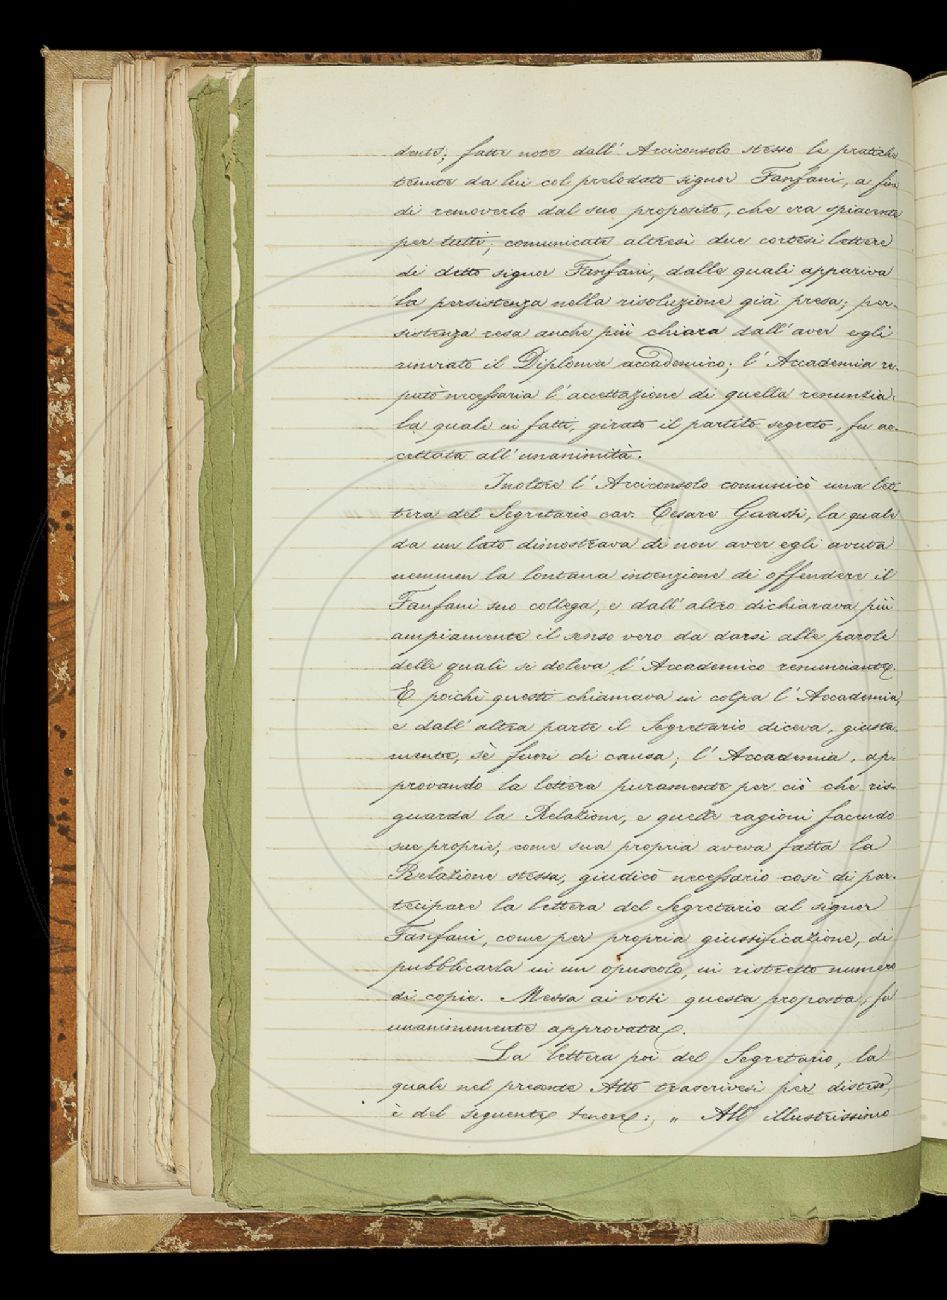 dente; fatte note dall' Arciconsolo stesso le pratiche
tenute da lui col prelodato signor Fanfani, a fin
di removerlo dal suo proposito, che era spiacente
per tutti; comunicate altresì due cortesi lettere
di detto signor Fanfani, dalle quali appariva
la persistenza nella risoluzione già presa; per-
sistenza resa anche più chiara dall' aver egli
rinviato il Diploma accademico; l' Accademia re-
putò necessaria l' accettazione di quella renunzia.
la quale in fatti, girato il partito segreto, fu ac-
cettata all' unanimità.
Inoltre l' Arciconsolo comunicò una let-
tera del Segretario cav. Cesare Guasti, la quale
da un lato dimostrava di non aver egli avuta
nemmen la lontana intenzione di offendere il
Fanfani suo collega, e dall' altro dichiarava più
ampiamente il senso vero da darsi alle parole
delle quali si doleva l' Accademico renunciante.
E poichè questo chiamava in colpa l' Accademia,
e dall' altra parte il Segretario diceva, giusta-
mente, sè fuori di causa; l' Accademia, ap-
provando la lettera puramente per ciò che ris-
guarda la Relazione, e quelle ragioni facendo
sue proprie, come sua propria aveva fatta la
Relazione stessa, giudicò necessario così di par-
tecipare la lettera del Segretario al signor
Fanfani, come per propria giustificazione, di
pubblicarla in un opuscolo, in ristretto numero
di copie. Messa ai voti questa proposta, fu
unanimemente approvata.
La lettera poi del Segretario, la
quale nel presente Atto trascrivesi per disteso,
è del seguente tenore: „ All' illustrissimo